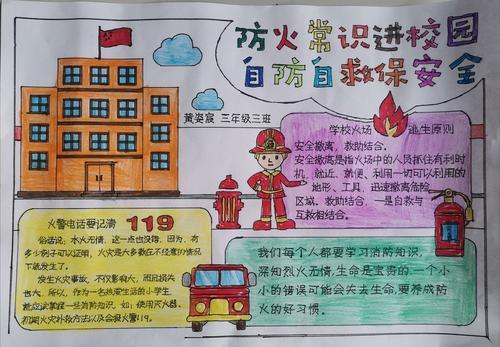 防火常识进校园
自防自救保安全
黄姿宸 三年级三班
学校火场 逃生原则
安全撤离，救助结合。
安全撤离是指火场中的人员抓住有利时
机，就近、就便、利用一切可以利用的
地形、工具，迅速撤离危险
区域，救助结合，一是自救与
互救相结合。
火警电话要记清 119
俗话说：水火无情，这一点也没错，因为，有
多少例子可以证明，火灾是大多数在不经意的情况
下就发生了。
发生火灾事故，不仅影响大，而且损失
也大。所以，作为一名热爱生活的小学生
就应该掌握一些消防知识，如：使用灭火器、
初期火灾扑救方法以及会报火警119。
我们每个人都要学习消防知识，
深知烈火无情，生命是宝贵的一个小
小的错误可能会失去生命，要养成防
火的好习惯。